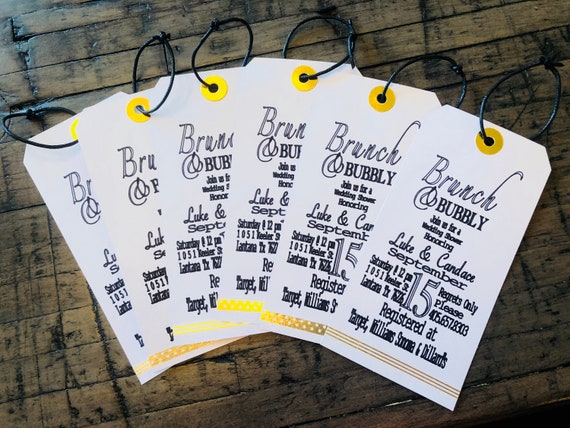 Brunch
& BUBBLY
Join us for a
Wedding Shower
Honoring
Luke & Candace
September
Saturday @ 12 pm
1051 Keeler St
Lantana Tx
15
Regrets Only
Please
Registered at
Target, Williams Sonoma & Dillards
Brunch
& BUBBLY
Join us for a
Wedding Shower
Honoring
Luke & Candace
September
Saturday @ 12 pm
1051 Keeler St
Lantana Tx
15
Registered
Target, Williams S
Brunch
& BUBBLY
Join us for a
Wedding Shower
Honoring
Luke &
September
Saturday @ 12 pm
1051 Keeler St
Lantana Tx
Target, Williams
Brunch
& BUBBLY
Join us for a
Wedding Shower
Honoring
Luke &
September
Saturday @ 12 pm
1051 Keeler St
Lantana Tx
Target,
Brunch
Luke
Saturday
1051
Lantana
Target
Saturday
1051
Lantana